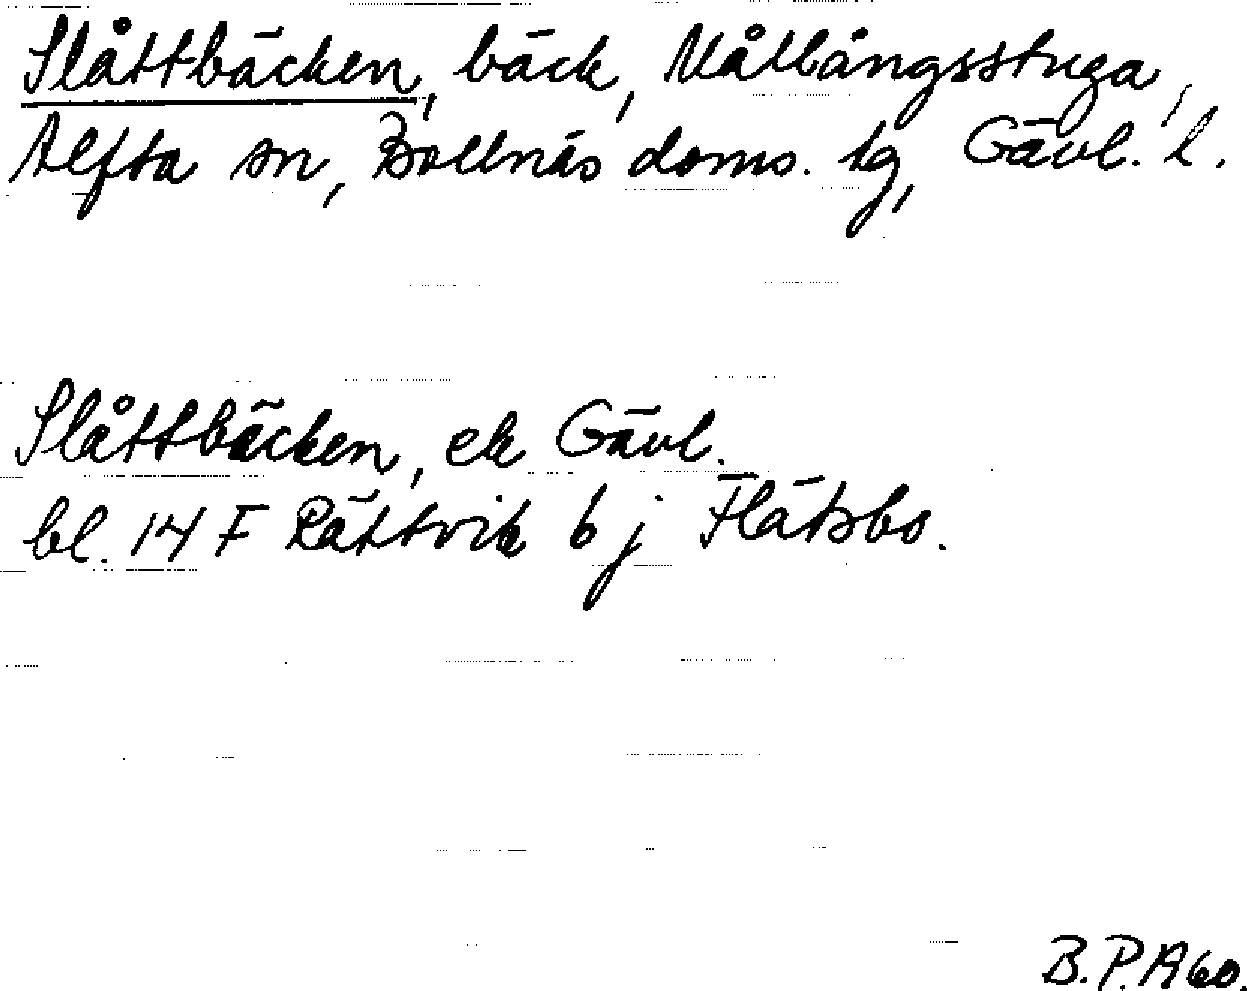 Slåttbäcken, bäck, Målångsstuga,
Alfta sn, Bollnäs doms. tg, Gävl. l.
Slåttbäcken, ek Gävl.
bl. 14 F Rättvik 6 j Flätsbo.
B.P.A60.